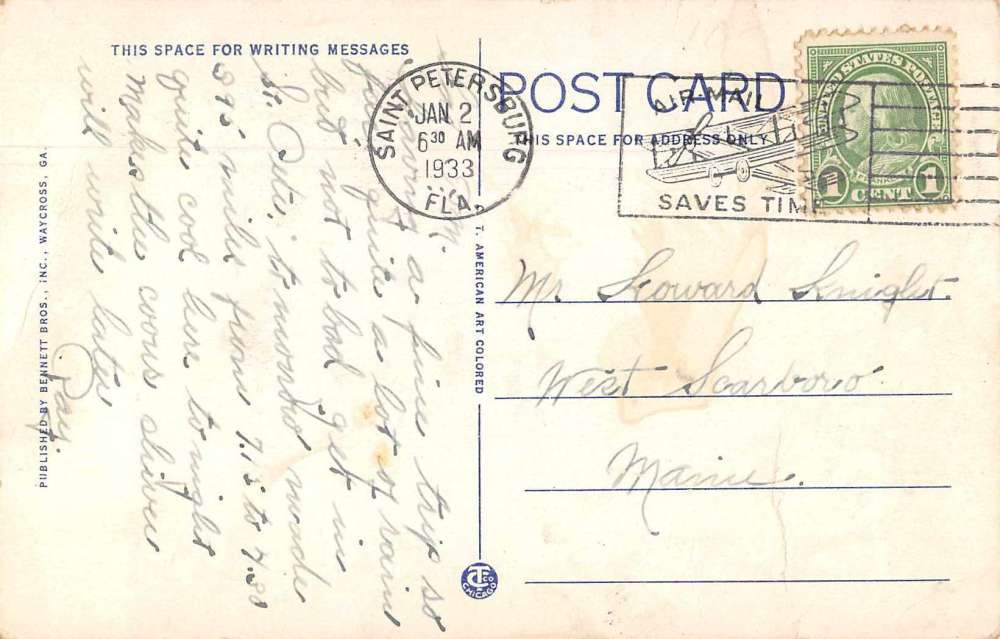 THIS SPACE FOR WRITING MESSAGES
POST CARD
THIS SPACE FOR ADDRESS ONLY
SAINT PETERSBURG
JAN 2
6 30 AM
1933
FLA.
AIR-MAIL
SAVES TIME
UNITED STATES POSTAGE
FRANKLIN
1 CENT 1
a fine trip so
far quite a lot of raine
but not to bad get in
St. Pete, to-morrow made
395 miles from 7.15 to 4.30
quite cool here to night
Makes the cows shiver
will write later
Ray.
Mr Howard Knight.
West Scarboro
Maine.
PUBLISHED BY BENNETT BROS., INC., WAYCROSS, GA.
C. T. AMERICAN ART COLORED
CT CO
CHICAGO